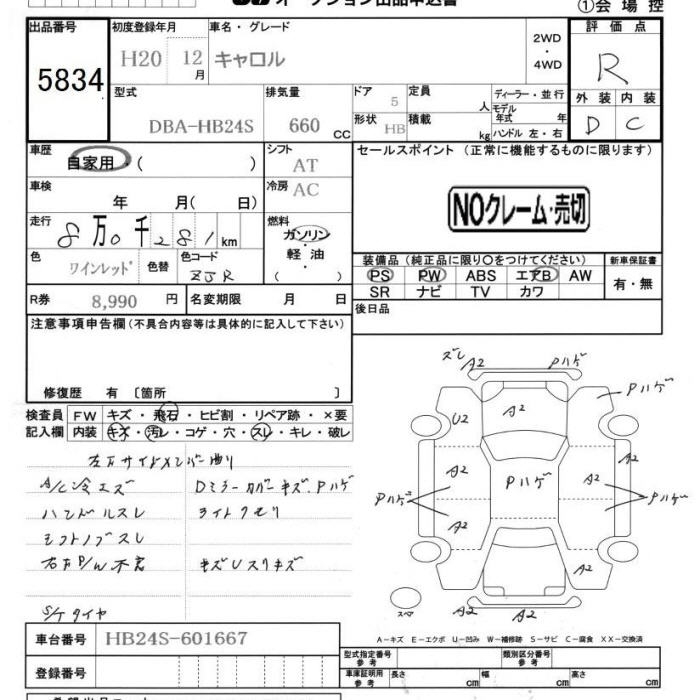 オークション出品申込書
①会場控
出品番号 初度登録年月 車名・グレード 評価点
5834 H20 12月 キャロル 2WD・4WD R
型式 排気量 ドア 定員 ディーラー・並行 外装 内装
DBA-HB24S 660cc 5 人 モデル年式 年 D C
形状 HB 積載 kg ハンドル 左・右
車歴 自家用・( ) シフト AT セールスポイント (正常に機能するものに限ります)
車検 年 月( 日) 冷房 AC
NOクレーム・売切
走行 8万0千281km 燃料 ガソリン・軽油・( )
色 ワインレッド 色替 色コード ZJR
装備品(純正品に限り○をつけてください) 新車保証書
PS PW ABS エアB AW 有・無
SR ナビ TV カワ
R券 8,990円 名変期限 月 日 後日品
注意事項申告欄(不具合内容等は具体的に記入して下さい)
修復歴 有 〔箇所 〕
検査員記入欄 FW キズ・飛石・ヒビ割・リペア跡・×要
内装 キズ・汚レ・コゲ・穴・スレ・キレ・破レ
左右サイドメンバー曲り
A/C冷エズ Dミラーカバーキズ、Pハゲ
ハンドルスレ ライトクモリ
シフトノブスレ
右右P/W不良 キズUスリキズ
S/Tタイヤ
ズレ A2 Pハゲ
Pハゲ
U2 A2
A2 Pハゲ A2
Pハゲ Pハゲ
A2
A2 A2
スペア A2 A2
A-キズ E-エクボ U-凹み W-補修跡 S-サビ C-腐食 XX-交換済
車台番号 HB24S-601667
登録番号
型式指定番号 参考 類別区分番号 参考
車庫証明用 参考 長さ cm 幅 cm 高さ cm